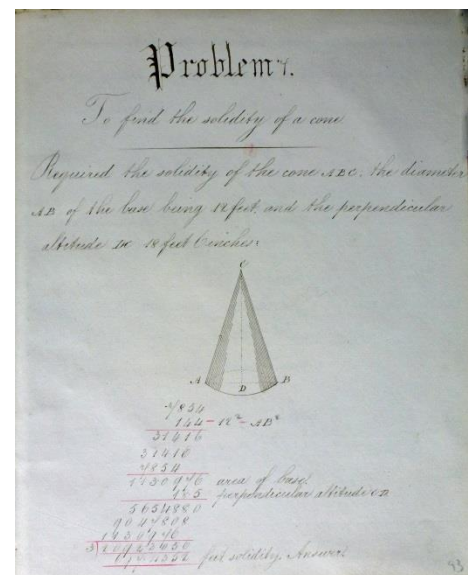 Problem 7.
To find the solidity of a cone
Required the solidity of the cone ABC, the diameter
AB of the base being 12 feet, and the perpendicular
altitude DC 18 feet 6 inches:
C
A D B
7854
144 = 12² = AB²
31416
31416
7854
1130976 area of base
185 perpendicular altitude CD
5654880
9047808
1130976
3)
feet solidity. Answer
93